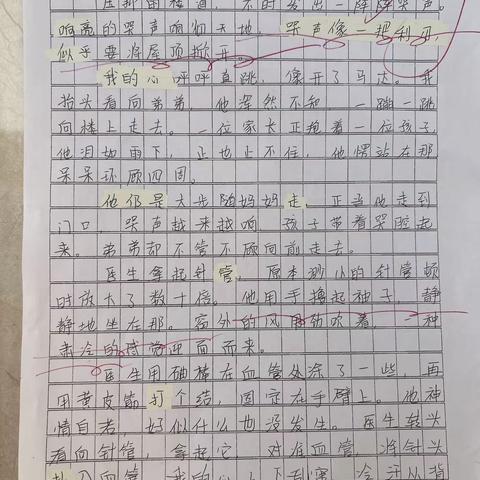 压抑的楼道，不时发出一阵阵哭声。
响亮的哭声响彻天地，哭声像一把利刃，
似乎要将屋顶掀开。
我的心呯呯直跳，像开了马达。我
抬头看向弟弟，他浑然不知，一蹦一跳
向楼上走去。一位家长正抱着一位孩子，
他泪如雨下，止也止不住，他愣站在那
呆呆环顾四周。
他仍是大步随妈妈走，正当他走到
门口，哭声越来越响，孩子带着哭腔起
来。弟弟却不管不顾向前走去。
医生拿起针管，原本渺小的针管顿
时放大了数十倍。他用手撸起袖子，静
静地坐在那。窗外的风用劲吹着，一种
肃冷的感觉迎面而来。
医生用碘棒在血管处涂了一些，再
用黄皮筋打个结，固定在手臂上。他神
情自若，好似什么也没发生。医生转头
看向针管，拿起它，对准血管，将针头
扎入血管。我的心下
冷汗从背